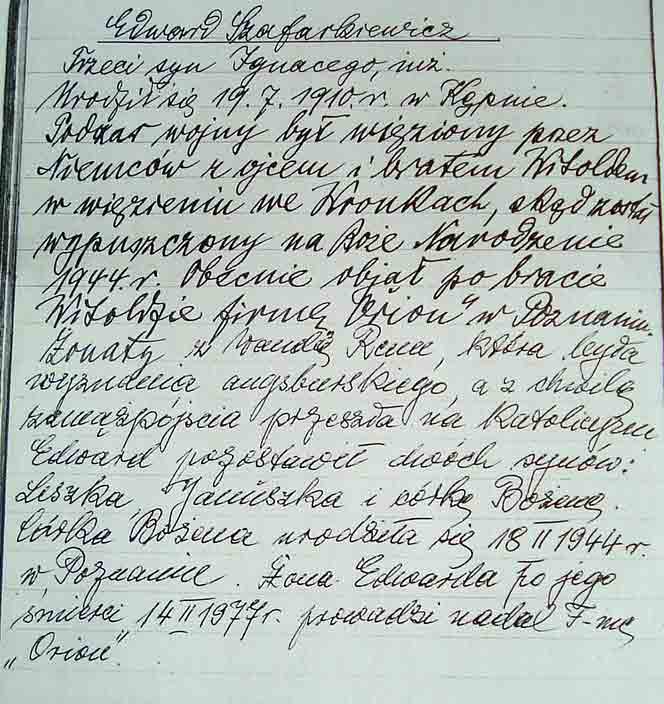 Edward Szafarkiewicz
Trzeci syn Ignacego, inż.
Urodził się 19.7.1910.r. w Kępnie.
Podczas wojny był więziony przez
Niemców z ojcem i bratem Witoldem
w więzieniu we Wronkach, skąd został
wypuszczony na Boże Narodzenie
1944.r. Obecnie objął po bracie
Witoldzie firmę "Orion" w Poznaniu.
Żonaty z Wandą Renn, która była
wyznania augsburskiego, a z chwilą
zamążpójścia przeszła na katolicyzm
Edward pozostawił dwóch synów:
Leszka, Januszka i córkę Bożenę.
Córka Bożena urodziła się 18 II 1944 r.
w Poznaniu. Żona Edwarda po jego
śmierci 14 II 1977r. prowadzi nadal F-mę
„Orion".